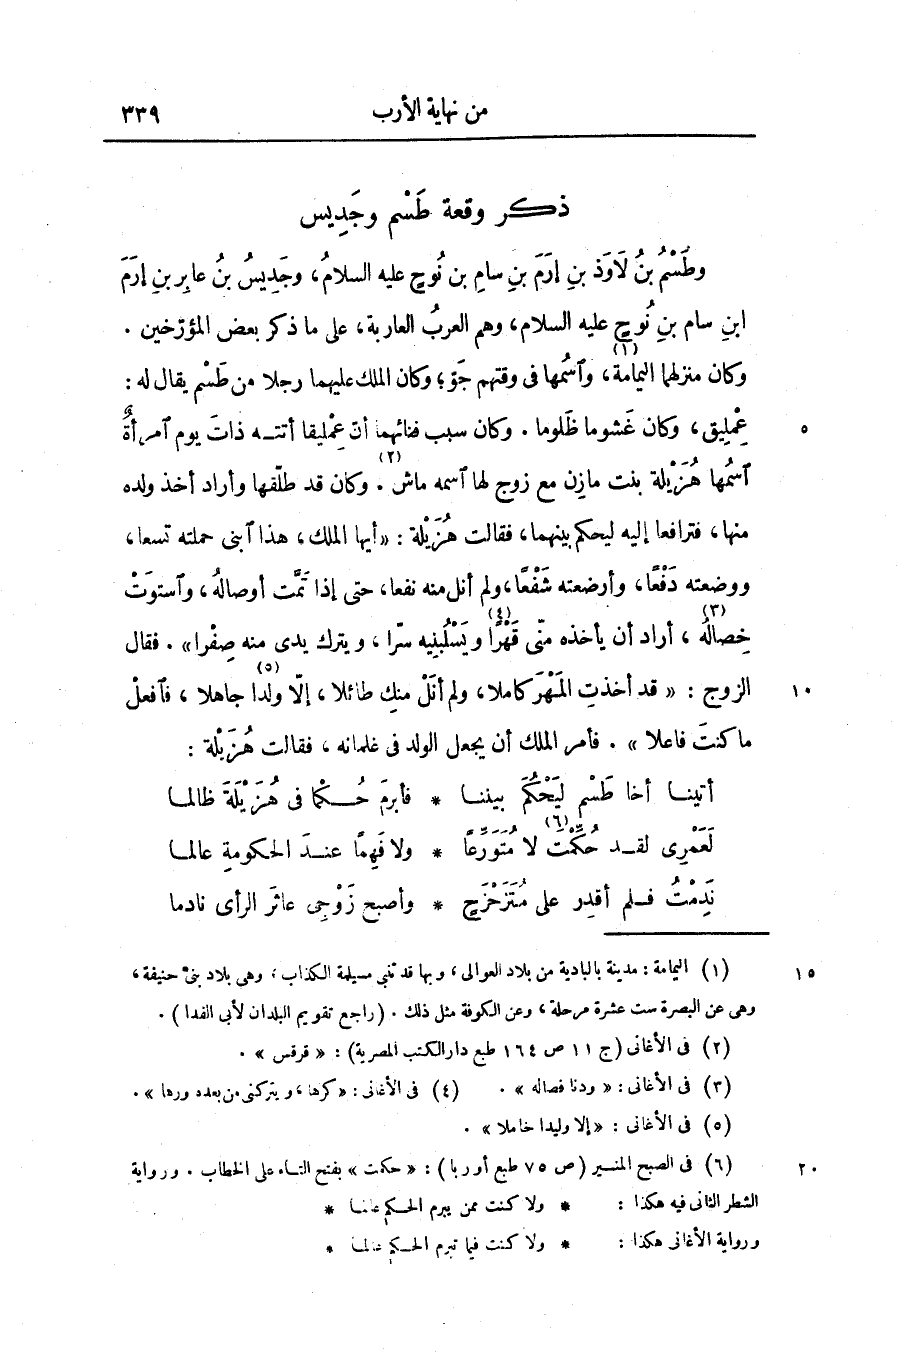 من نهاية الأرب ٣٣٩
ذكر وقعة طَسْم وجَدِيس
وطَسْمُ بنُ لَاوَذ بنِ إرَمَ بنِ سامِ بن نُوحٍ عليه السلامُ، وجَدِيسُ بنُ عابِرِ بنِ إرَمَ
ابنِ سام بنِ نُوحٍ عليه السلام، وهم العربُ العاربة، على ما ذكر بعض المؤرّخين .
وكان منزلهما اليمامة(١)، وآسمُها فى وقتهم جَوّ؛ وكان الملك عليهما رجلا من طَسْم يقال له :
عِمْلِيق، وكان غَشوما ظَلوما . وكان سبب فنائهما أنّ عِمْليقا أتتـه ذاتَ يوم آمرأةٌ ٥
آسمُها هُزَيْلة بنت مازِن مع زوج لها آسمه ماش(٢) . وكان قد طلّقها وأراد أخذ ولده
منها، فترافعا إليه ليحكم بينهما، فقالت هُزَيْلة : «أيها الملك، هذا آبنى حملته تسعا،
ووضعته دَفْعًا، وأرضعته شَفْعًا، ولم أنل منه نفعا، حتى إذا تَمَّت أوصالُه، وآستوَتْ
خِصالُه(٣) ، أراد أن يأخذه منّى قَهْرًا(٤) ويَسْلُبَنِيه سرّا ، ويترك يدى منه صِفْرا» . فقال
الزوج : « قد أخذتِ المَهْرَ كاملا، ولم أنَلْ منكِ طائلا ، إلّا ولدا(٥) جاهلا ، فآفعلْ ١٠
ما كنتَ فاعلا » . فأمر الملك أن يجعل الولد فى غلمانه ، فقالت هُزَيْلة :
أتينـا أخا طَسْمٍ لِيَحْكُمَ بيننـا * فأبرمَ حُـكْما فى هُزَيْلَةَ ظالمـا
لَعَمْرِى لقـد حُكِّمْتَ(٦) لا مُتَوَرِّعًا * ولا فَهِمًا عنـدَ الحكومةِ عالمـا
نَدِمْتُ فـلم أقدِر على مُتَزَحْزَحٍ * وأصبح زَوْجِى عاثرَ الرأى نادما
(١) اليمامة : مدينة بالبادية من بلاد العوالى، وبها قد تنبى مسيلمة الكذاب، وهى بلاد بنى حنيفة، ١٥
وهى عن البصرة ست عشرة مرحلة، وعن الكوفة مثل ذلك . (راجع تقويم البلدان لأبى الفدا) .
(٢) فى الأغانى (ج ١١ ص ١٦٤ طبع دار الكتب المصرية) : « قرقس » .
(٣) فى الأغانى : « ودنا فصاله » . (٤) فى الأغانى : «كرها، ويتركنى من بعده ورها » .
(٥) فى الأغانى : «إلا وليدا خاملا» .
(٦) فى الصبح المنـير (ص ٧٥ طبع أوربا) : « حكمت » بفتح التـاء على الخطاب . ورواية ٢٠
الشطر الثانى فيه هكذا : * ولا كنت ممن يبرم الحـكم عالمـا *
ورواية الأغانى هكذا : * ولا كنت فيما تبرم الحـكم عالمـا *